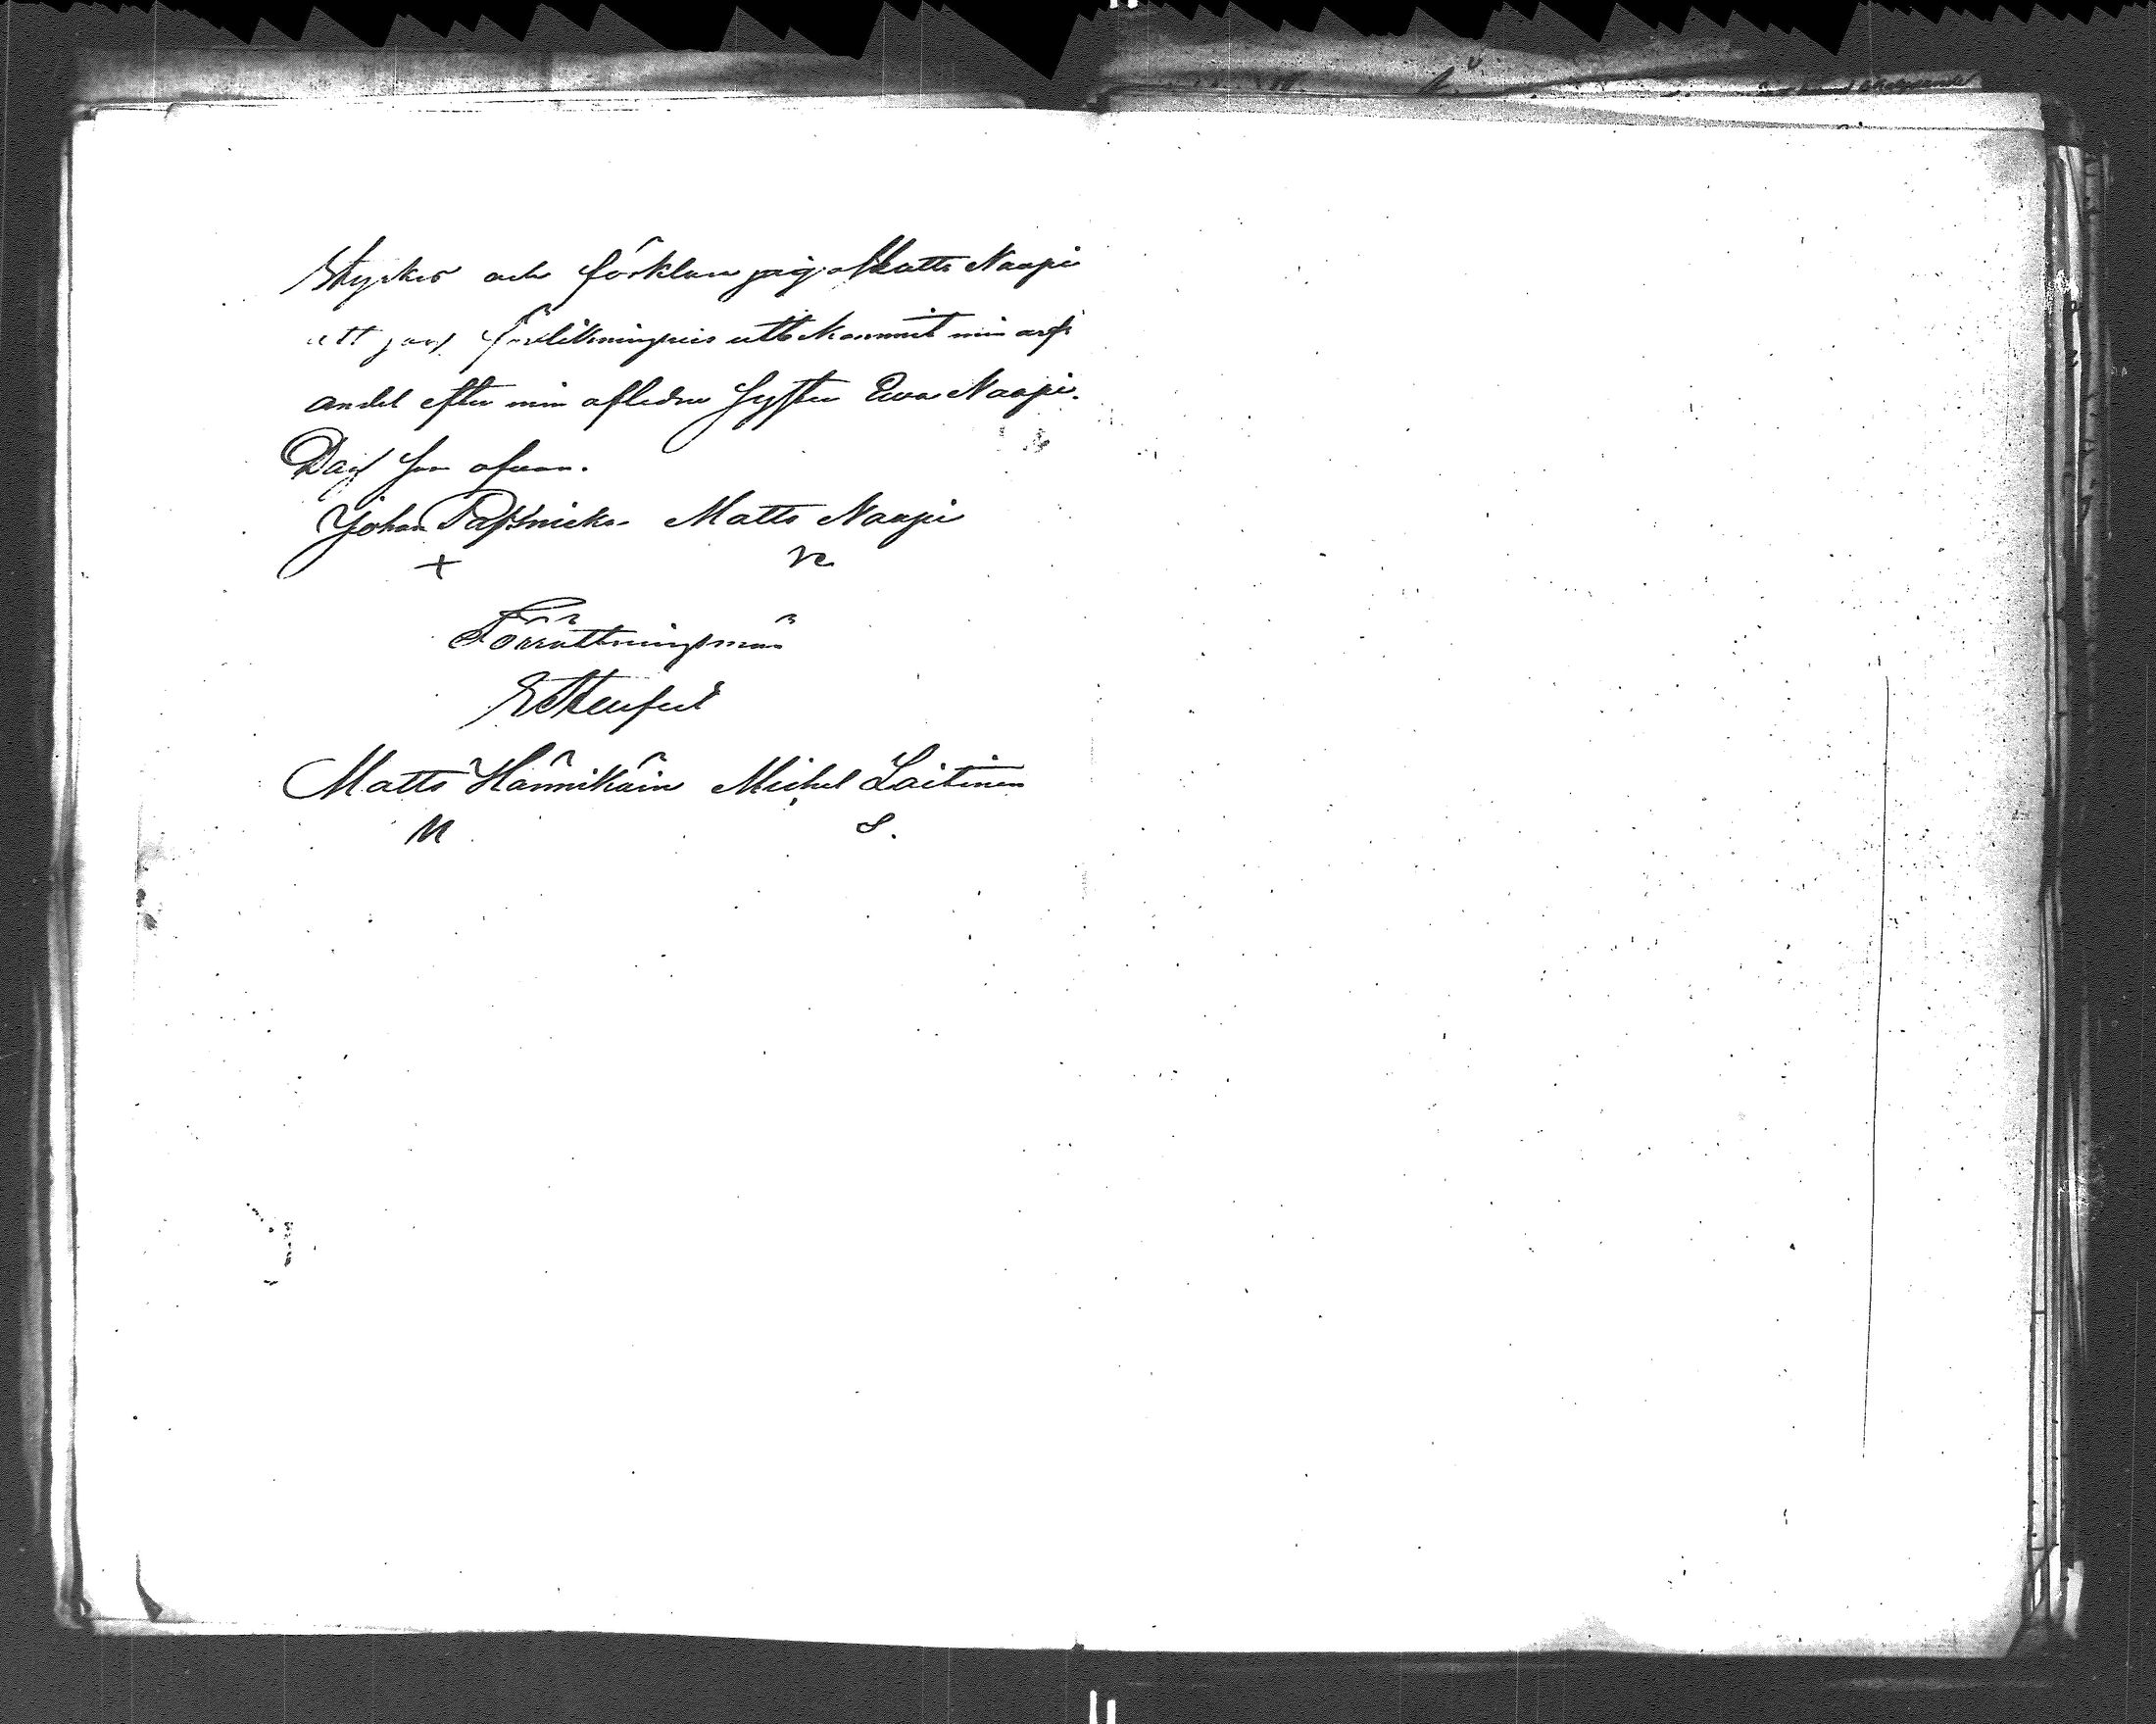 Styrkes och förklarar jag Matts Naapi
att jag förlikningsvis utbekommit min arfs
andel efter min aflidna syster Ewa Naapi.
Dag som ofvan.
Johan Matts Naapi
+
Förrättningsmän
Matts Hännikäin Michel Laitinen
M S.